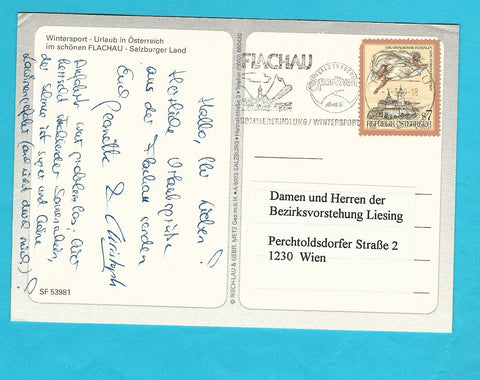 Wintersport - Urlaub in Österreich
im schönen FLACHAU - Salzburger Land
Hallo, Ihr Lieben!
Herzliche Urlaubsgrüße
aus der Flachau senden
Euch Jeanette & Christoph
Anfahrt war problemlos; hier
herrscht strahlender Sonnenschein,
der Schnee ist super und keine
Lawinengefahr (und
SF 53981
© RISCH-LAU & GEBR. METZ Ges.m.b.H. · A-5023 SALZBURG
FLACHAU
SOMMERERHOLUNG / WINTERSPORT
REPUBLIK ÖSTERREICH
S7
Damen und Herren der
Bezirksvorstehung Liesing
Perchtoldsdorfer Straße 2
1230 Wien